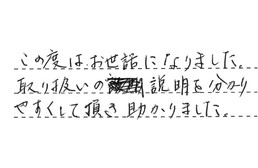 この度はお世話になりました。
取り扱いの説明を分かり
やすくして頂き助かりました。